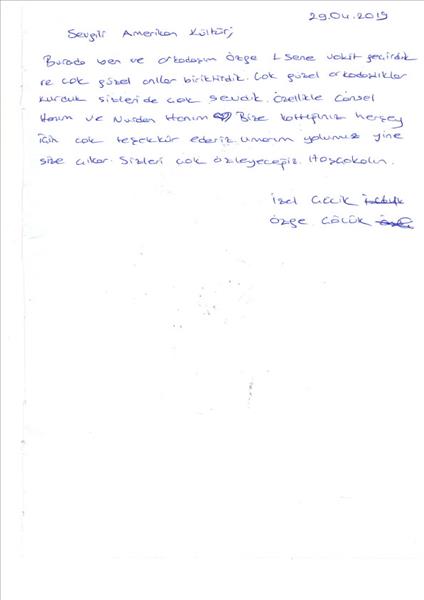 29.04.2019
Sevgili Amerikan Kültür;
Burada ben ve arkadaşım Özge 1 sene vakit geçirdik
ve çok güzel anılar biriktirdik. Çok güzel arkadaşlıklar
kurduk sizleri de çok sevdik. Özellikle Cansel
Hanım ve Nurdan Hanım Bize kattığınız herşey
için çok teşekkür ederiz umarım yolumuz yine
size çıkar. Sizleri çok özleyeceğiz. Hoşçakalın.
İzel
Özge